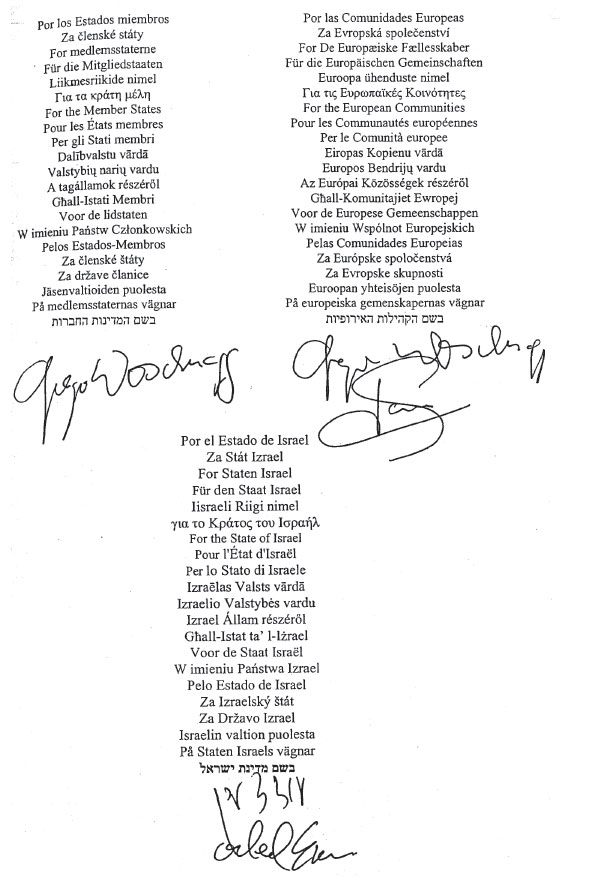 Por los Estados miembros
Za členské státy
For medlemsstaterne
Für die Mitgliedstaaten
Liikmesriikide nimel
Για τα κράτη μέλη
For the Member States
Pour les États membres
Per gli Stati membri
Dalībvalstu vārdā
Valstybių narių vardu
A tagállamok részéről
Għall-Istati Membri
Voor de lidstaten
W imieniu Państw Członkowskich
Pelos Estados-Membros
Za členské štáty
Za države članice
Jäsenvaltioiden puolesta
På medlemsstaternas vägnar
בשם המדינות החברות
Por las Comunidades Europeas
Za Evropská společenství
For De Europæiske Fællesskaber
Für die Europäischen Gemeinschaften
Euroopa ühenduste nimel
Για τις Ευρωπαϊκές Κοινότητες
For the European Communities
Pour les Communautés européennes
Per le Comunità europee
Eiropas Kopienu vārdā
Europos Bendrijų vardu
Az Európai Közösségek részéről
Għall-Komunitajiet Ewropej
Voor de Europese Gemeenschappen
W imieniu Wspólnot Europejskich
Pelas Comunidades Europeias
Za Európske spoločenstvá
Za Evropske skupnosti
Euroopan yhteisöjen puolesta
På europeiska gemenskapernas vägnar
בשם הקהילות האירופיות
Por el Estado de Israel
Za Stát Izrael
For Staten Israel
Für den Staat Israel
Iisraeli Riigi nimel
για το Κράτος του Ισραήλ
For the State of Israel
Pour l'État d'Israël
Per lo Stato di Israele
Izraēlas Valsts vārdā
Izraelio Valstybės vardu
Izrael Állam részéről
Għall-Istat ta' l-Iżrael
Voor de Staat Israël
W imieniu Państwa Izrael
Pelo Estado de Israel
Za Izraelský štát
Za Državo Izrael
Israelin valtion puolesta
På Staten Israels vägnar
בשם מדינת ישראל